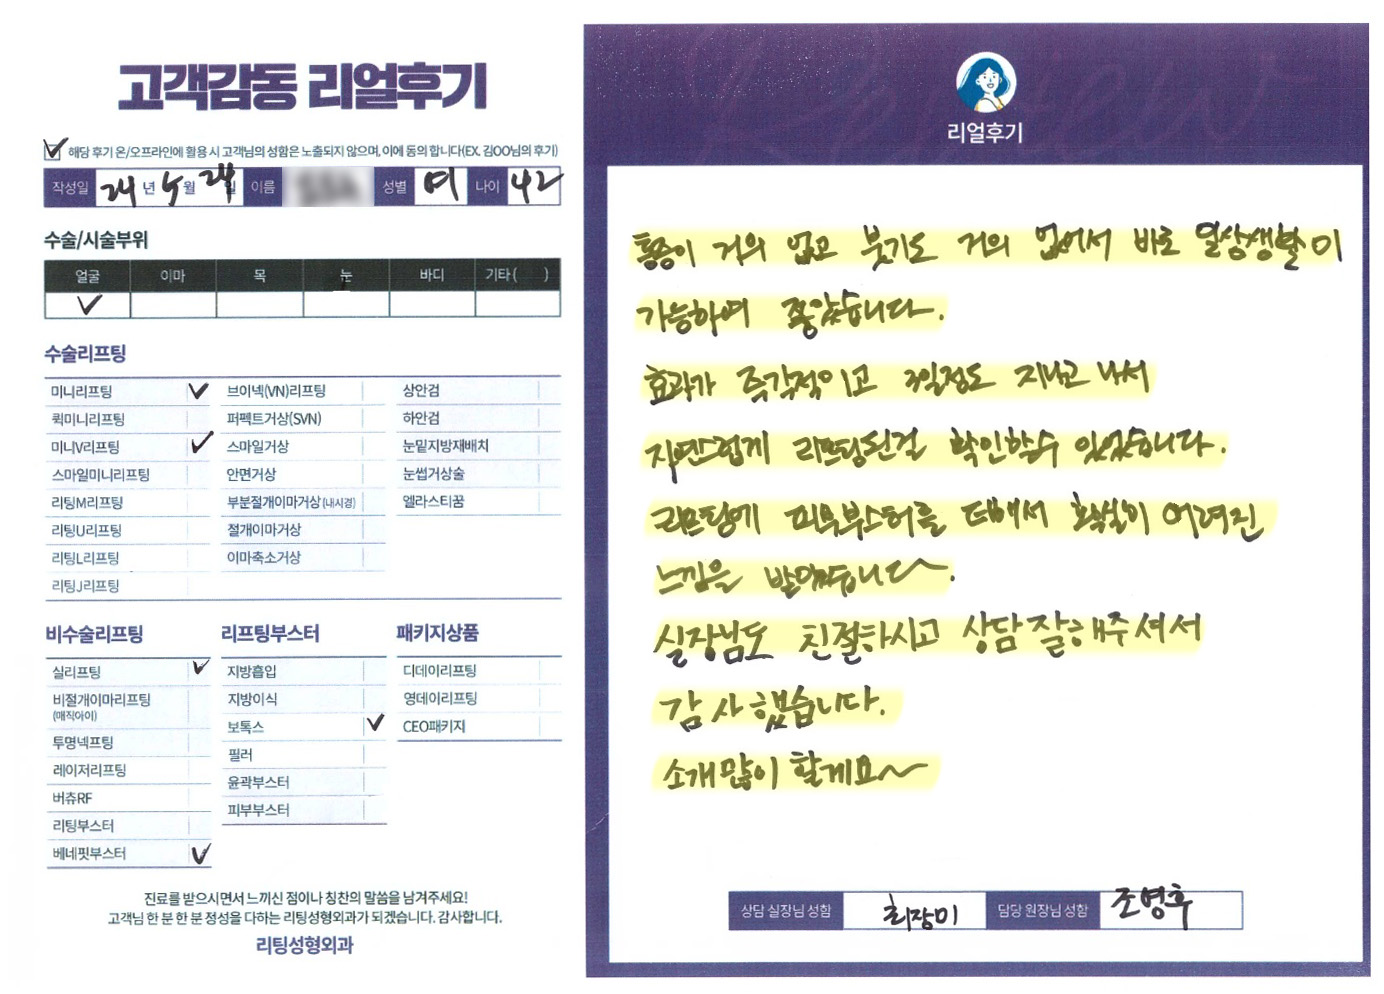 고객감동 리얼후기
해당 후기 온/오프라인에 활용 시 고객님의 성함은 노출되지 않으며, 이에 동의 합니다(EX. 김OO님의 후기)
작성일 24 년 5 월 24 일 이름 성별 여 나이 42
수술/시술부위
얼굴 이마 목 눈 바디 기타 ( )
수술리프팅
미니리프팅 브이넥(VN)리프팅 상안검
퀵미니리프팅 퍼펙트거상(SVN) 하안검
미니V리프팅 스마일거상 눈밑지방재배치
스마일미니리프팅 안면거상 눈썹거상술
리팅M리프팅 부분절개이마거상 (내시경) 엘라스티꿈
리팅U리프팅 절개이마거상
리팅L리프팅 이마축소거상
리팅J리프팅
비수술리프팅 리프팅부스터 패키지상품
실리프팅 지방흡입 디데이리프팅
비절개이마리프팅 지방이식 영데이리프팅
(매직아이) 보톡스 CEO패키지
투명넥프팅 필러
레이저리프팅 윤곽부스터
버츄RF 피부부스터
리팅부스터
베네핏부스터
진료를 받으시면서 느끼신 점이나 칭찬의 말씀을 남겨주세요!
고객님 한 분 한 분 정성을 다하는 리팅성형외과가 되겠습니다. 감사합니다.
리팅성형외과
리얼후기
통증이 거의 없고 붓기도 거의 없어서 바로 일상생활이
가능하여 좋았습니다.
효과가 즉각적이고 3일정도 지나고 나서
자연스럽게 리프팅된걸 확인할수 있었습니다.
리프팅에 피부부스터를 더해서 확실히 어려진
느낌을 받았습니다~.
실장님도 친절하시고 상담 잘해주셔서
감사했습니다.
소개많이 할게요~
상담 실장님 성함 최장미 담당 원장님 성함 조영후